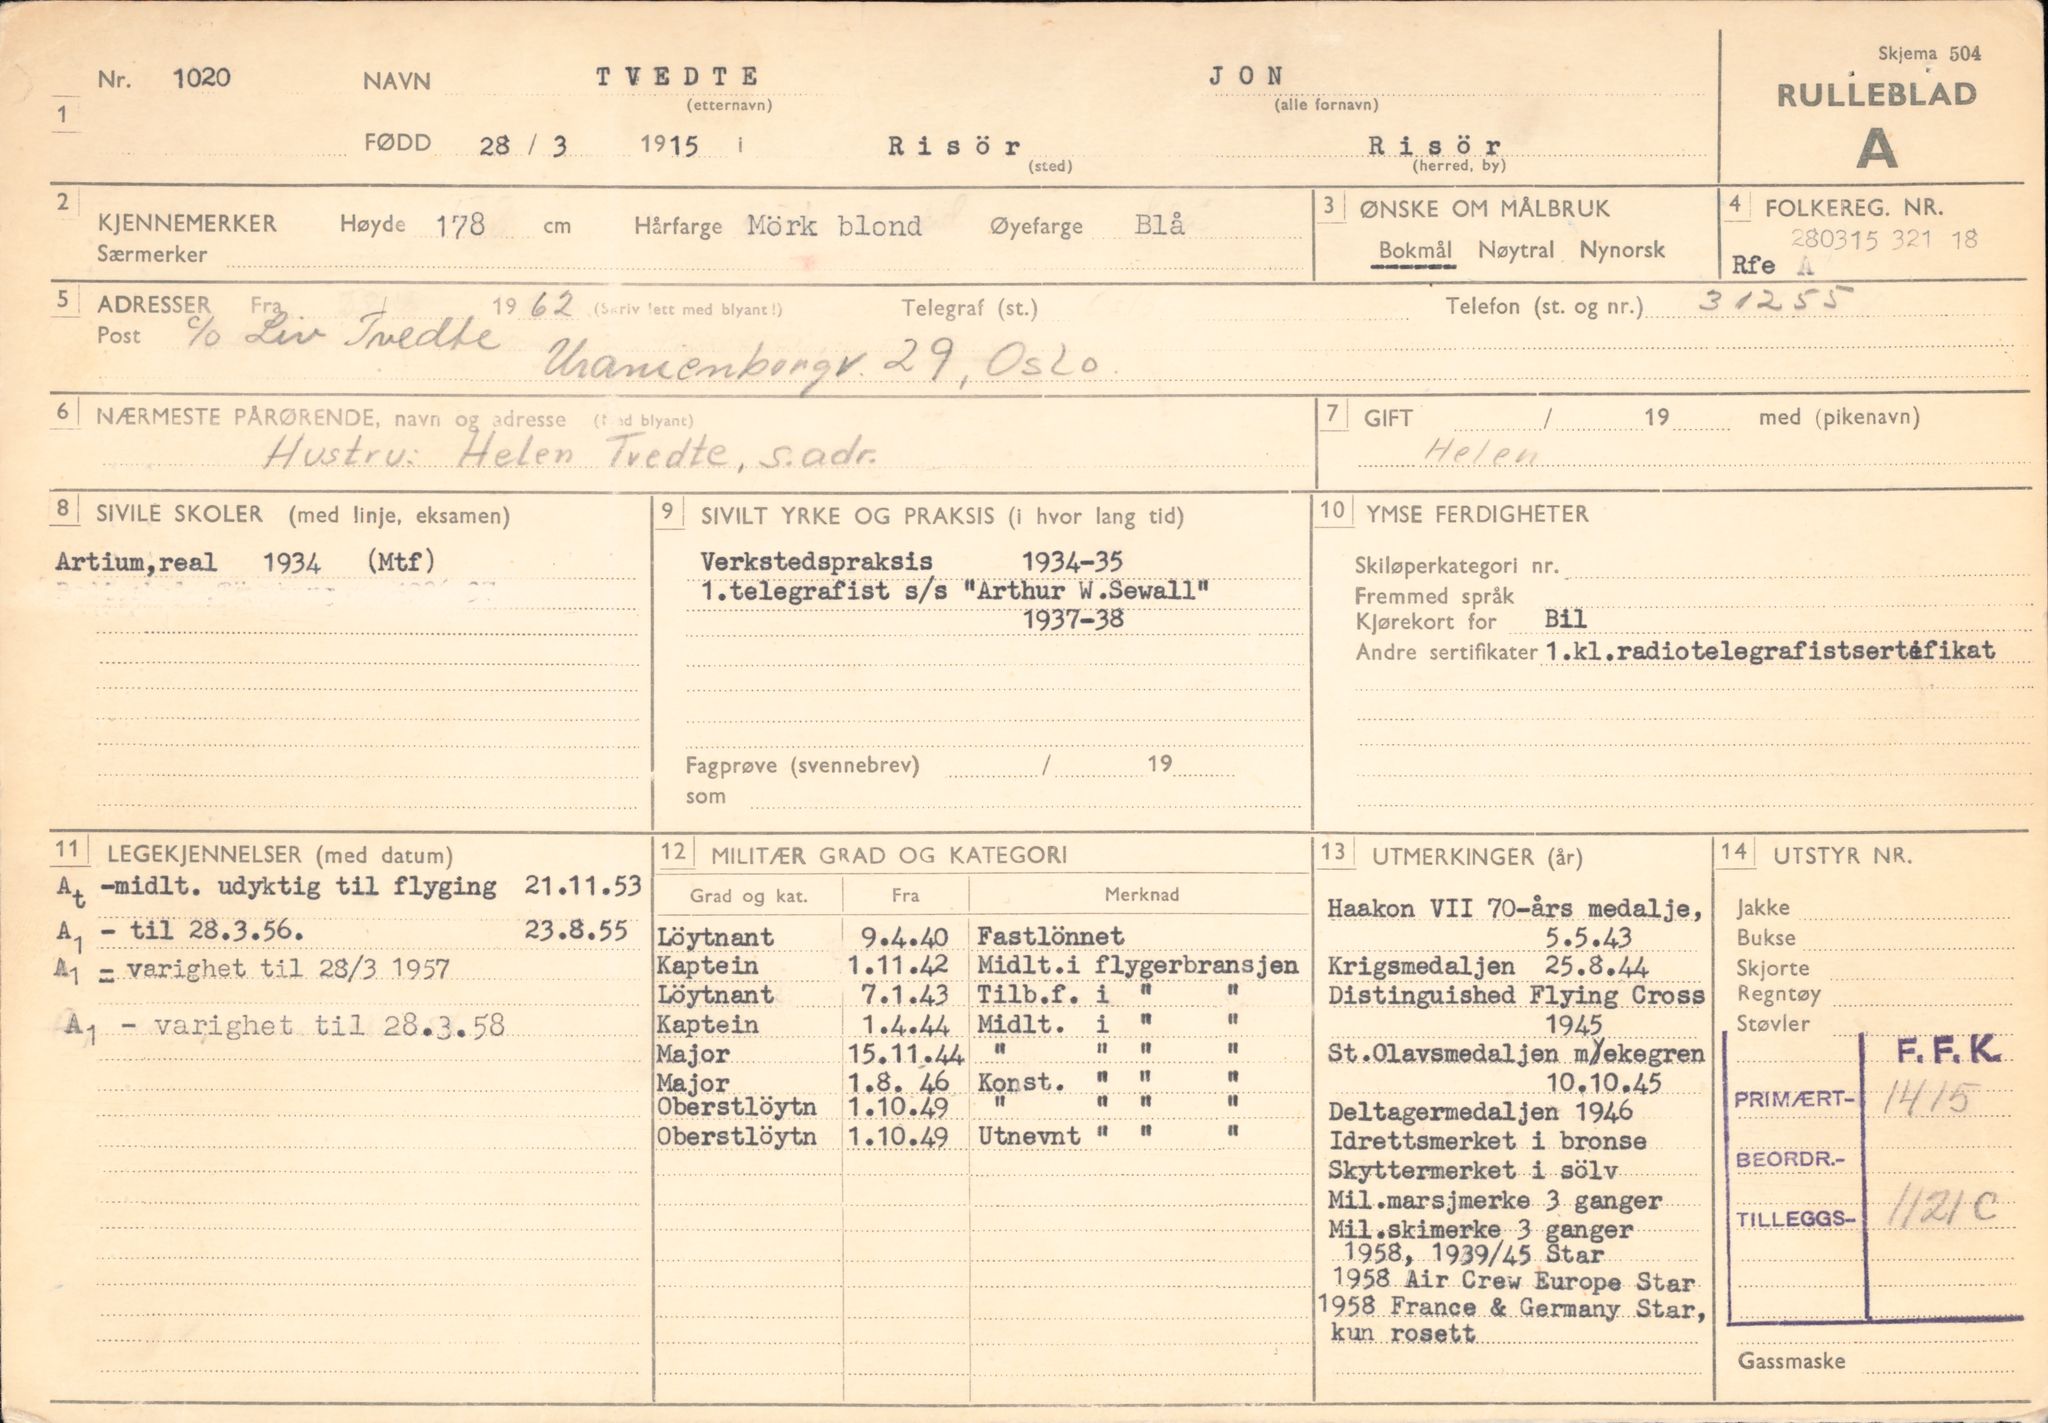 Skjema 504
RULLEBLAD
A
Nr. 1020 NAVN TVEDTE JON
(etternavn) (alle fornavn)
1
FØDD 28 / 3 1915 i Risör Risör
(sted) (herred, by)
2 KJENNEMERKER Høyde 178 cm Hårfarge Mörk blond Øyefarge Blå
Særmerker
3 ØNSKE OM MÅLBRUK
Bokmål Nøytral Nynorsk
4 FOLKEREG. NR.
280315 321 18
Rfe A
5 ADRESSER Fra / 1962 (Skriv lett med blyant!) Telegraf (st.) Telefon (st. og nr.) 31255
Post c/o Liv Tvedte
Uranienborgv. 29, Oslo.
6 NÆRMESTE PÅRØRENDE, navn og adresse (Med blyant)
Hustru: Helen Tvedte, s.adr.
7 GIFT / 19 med (pikenavn)
Helen
8 SIVILE SKOLER (med linje, eksamen)
Artium,real 1934 (Mtf)
9 SIVILT YRKE OG PRAKSIS (i hvor lang tid)
Verkstedspraksis 1934-35
1.telegrafist s/s "Arthur W.Sewall"
1937-38
Fagprøve (svennebrev) / 19
som
10 YMSE FERDIGHETER
Skiløperkategori nr.
Fremmed språk
Kjørekort for Bil
Andre sertifikater 1.kl.radiotelegrafistsertifikat
11 LEGEKJENNELSER (med datum)
At -midlt. udyktig til flyging 21.11.53
A1 - til 28.3.56. 23.8.55
A1 - varighet til 28/3 1957
A1 - varighet til 28.3.58
12 MILITÆR GRAD OG KATEGORI
Grad og kat. Fra Merknad
Löytnant 9.4.40 Fastlönnet
Kaptein 1.11.42 Midlt.i flygerbransjen
Löytnant 7.1.43 Tilb.f. i " "
Kaptein 1.4.44 Midlt. i " "
Major 15.11.44 " " " "
Major 1.8. 46 Konst. " " "
Oberstlöytn 1.10.49 " " " "
Oberstlöytn 1.10.49 Utnevnt " " "
13 UTMERKINGER (år)
Haakon VII 70-års medalje,
5.5.43
Krigsmedaljen 25.8.44
Distinguished Flying Cross
1945
St.Olavsmedaljen m/ekegren
10.10.45
Deltagermedaljen 1946
Idrettsmerket i bronse
Skyttermerket i sölv
Mil.marsjmerke 3 ganger
Mil.skimerke 3 ganger
1958, 1939/45 Star
1958 Air Crew Europe Star
1958 France & Germany Star,
kun rosett
14 UTSTYR NR.
Jakke
Bukse
Skjorte
Regntøy
Støvler
F.F.K.
PRIMÆRT- 1415
BEORDR.-
TILLEGGS- 1121C
Gassmaske